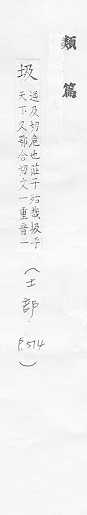 類篇
圾
逆及切危也莊子殆哉圾乎
天下又鄂合切文一重音一
(土部
P.574)